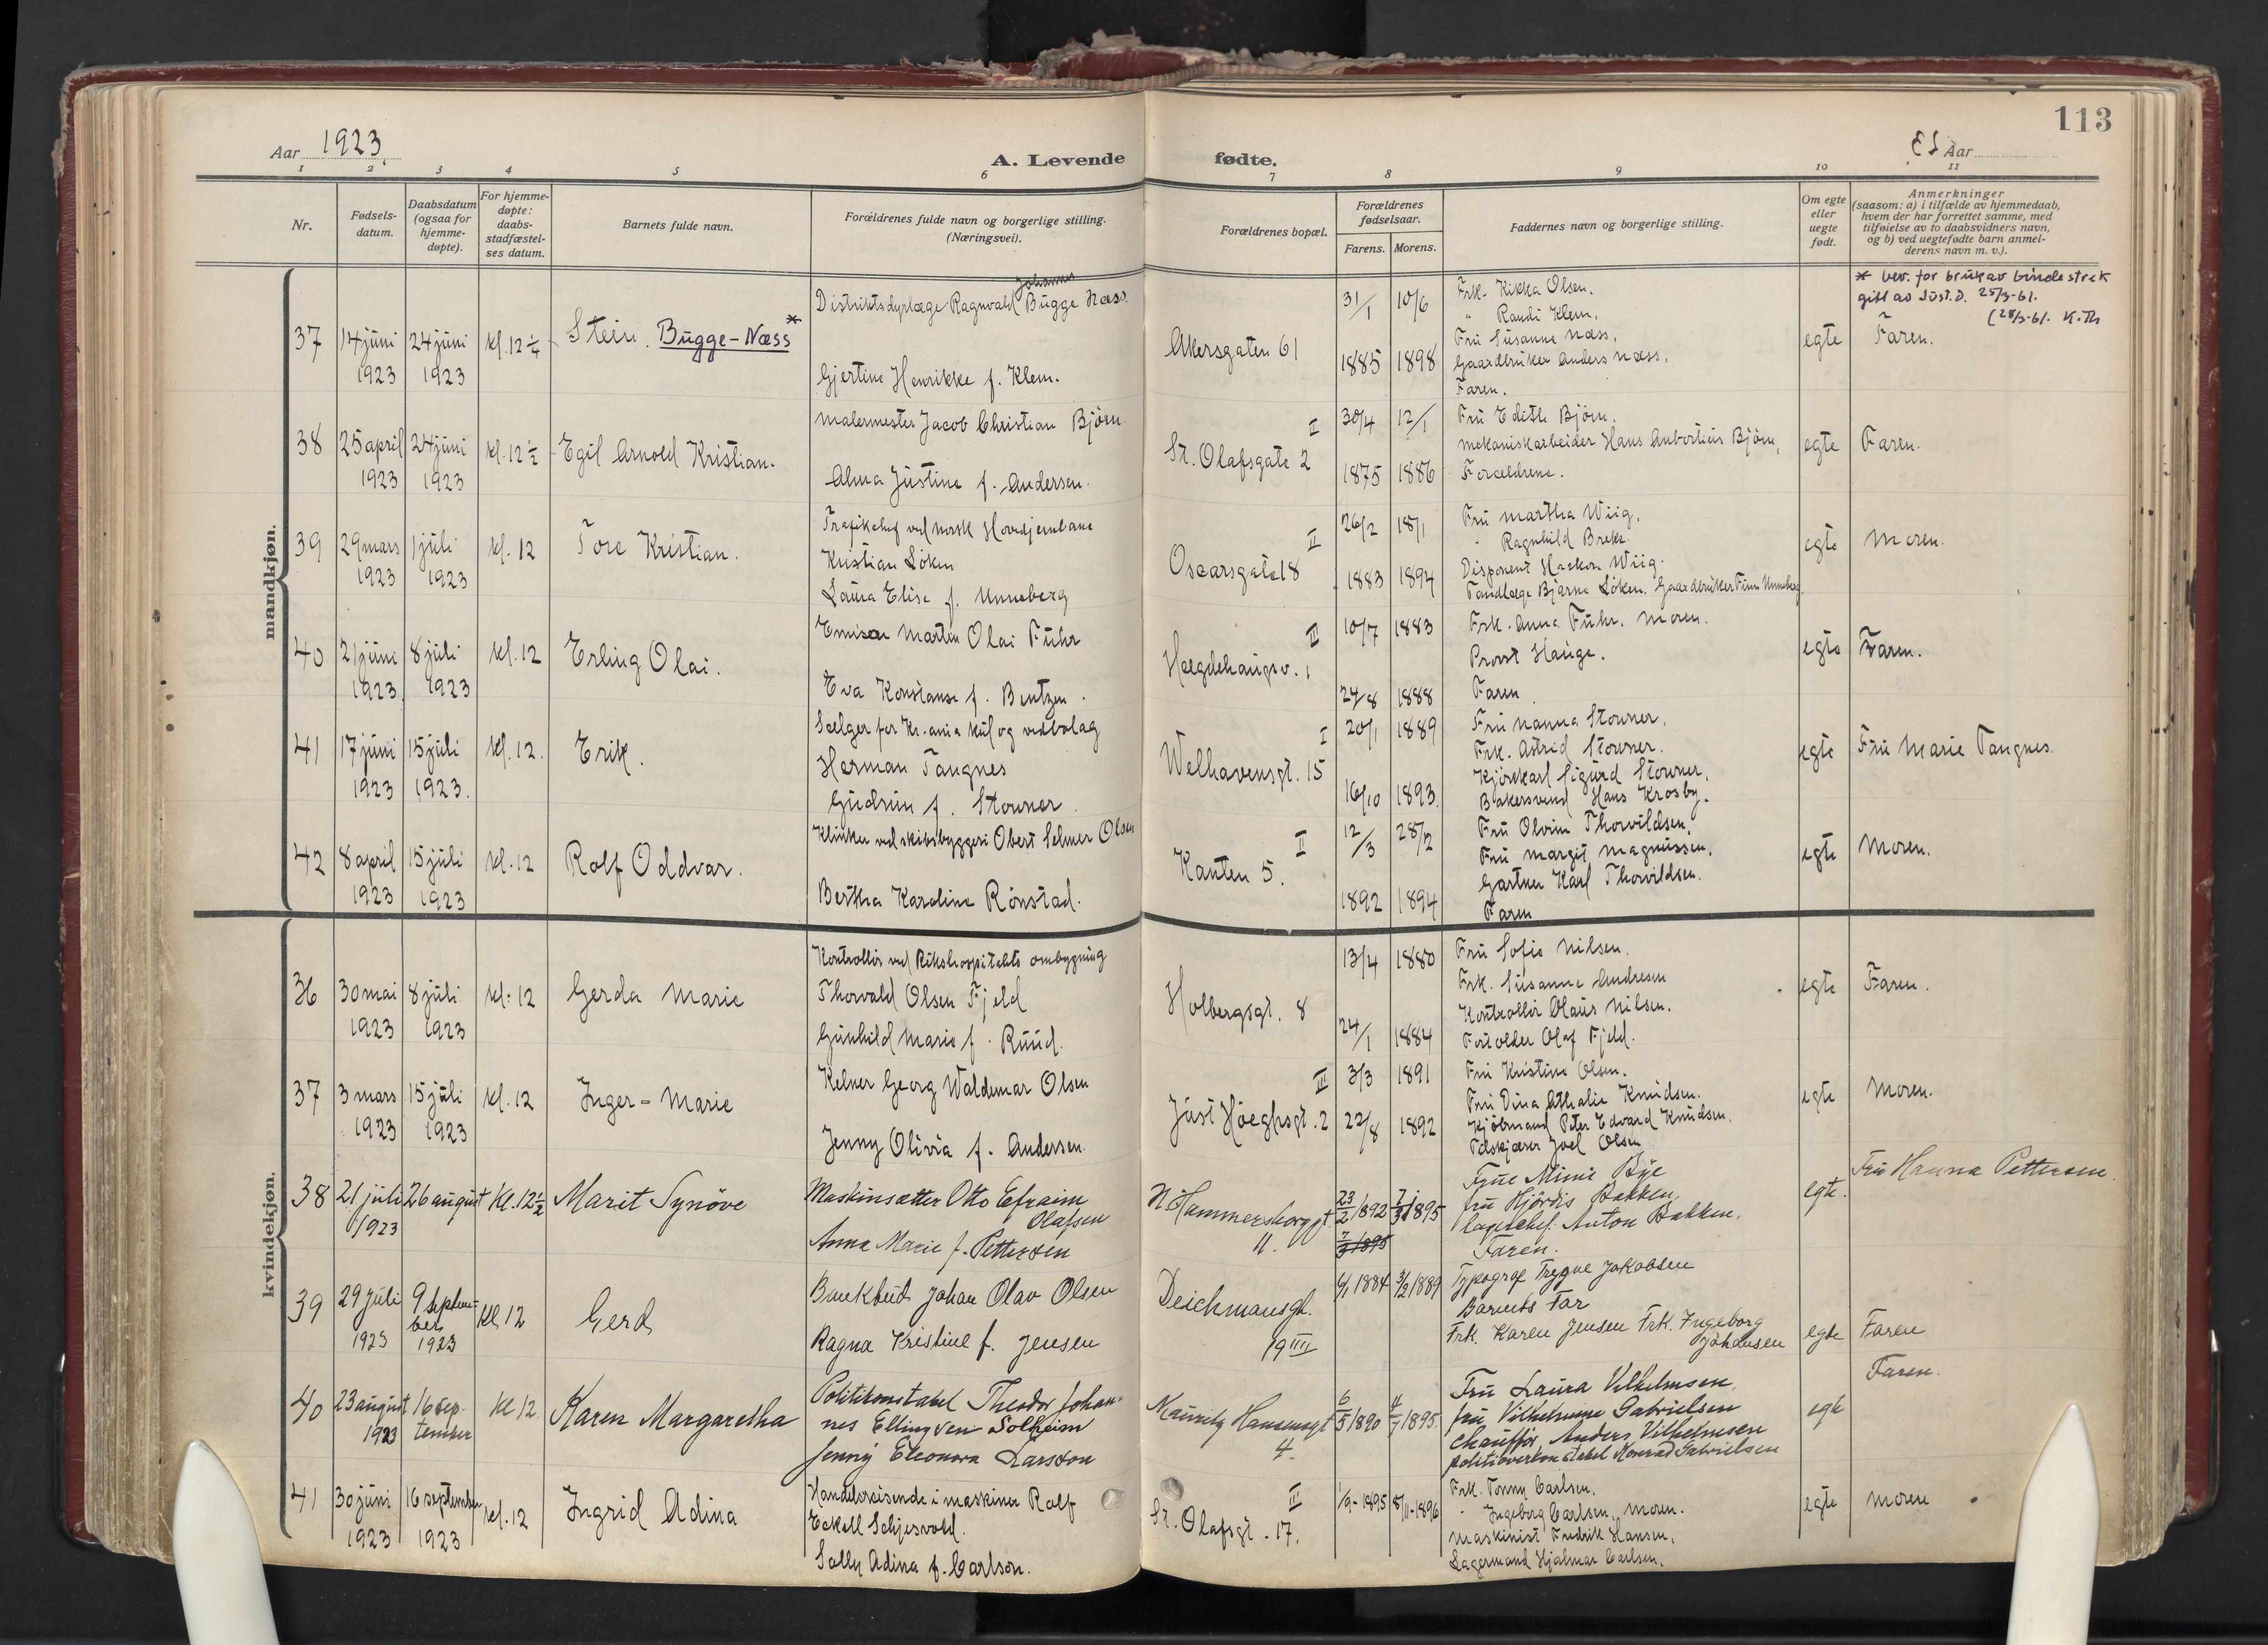 113
Aar 1923.
A. Levende fødte.
Aar 23
1 2 3 4 5 6 7 8 9 10 11
Nr.
Fødsels-
datum.
Daabsdatum
(ogsaa for
hjemme-
døpte).
For hjemme-
døpte:
daabs-
stadfæstel-
ses datum.
Barnets fulde navn.
Forældrenes fulde navn og borgerlige stilling.
(Næringsvei).
Forældrenes bopæl.
Forældrenes
fødselsaar.
Farens. Morens.
Faddernes navn og borgerlige stilling.
Om egte
eller
uegte
født.
Anmerkninger
(saasom: a) i tilfælde av hjemmedaab,
hvem der har forrettet samme, med
tilføielse av to daabsvidners navn,
og b) ved uegtefødte barn anmel-
derens navn m. v.).
mandkjøn.
37
14 juni
1923
24 juni
1923
kl. 12 1/4
Stein. Bugge-Næss *
Johannes
Distriktsdyrlæge Ragnvald Bugge Næss.
Gjertine Henrikke f. Klem.
Akersgaten 61
31/1 10/6
1885 1898
Frk. Kikka Olsen.
" Randi Klem.
Fru Susanne Næss.
Gaardbruker Anders Næss.
Faren.
egte
* bev. for bruk av bindestrek
gitt av Just.D. 25/3-61.
(28/3-61. K.Th
Faren.
38
25 april
1923
24 juni
1923
kl. 12 1/2
Egil Arnold Kristian.
Malermester Jacob Christian Bjørn.
Alma Justine f. Andersen.
II
St. Olafsgate 2
30/4 12/1
1875 1886
Fru Edith Bjørn.
Mekaniskarbeider Hans Anbortius Bjørn,
Forældrene.
egte
Faren.
39
29 mars
1923
1 juli
1923
kl. 12
Tore Kristian.
Trafikchef ved Norsk Hovedjernbane
Kristian Løken
Laura Elise f. Unneberg
II
Oscarsgate 18
26/2 18/1
1883 1894
Fru Martha Wiig.
" Ragnhild Brekk.
Disponent Haakon Wiig.
Tandlæge Bjarne Løken. Gaardbruker Finn Unneberg.
egte
Moren.
40
21 juni
1923.
8 juli
1923
kl. 12
Erling Olai.
Emissær Martin Olai Führ
Eva Konstanse f. Bentzen.
III
Hægdehaugsv. 1
10/7 1883
24/8 1888
Frk. Anna Führ. Moren.
Provst Hauge.
Faren
egte
Faren.
41
17 juni
1923
15 juli
1923.
kl. 12.
Erik.
Sælger for Kr.ania kul og vedbolag
Herman Tangnes
Gudrun f. Stovner.
I
Welhavensgt. 15
20/1 1889
16/10 1893.
Fru Nanna Stovner.
Frk. Astrid Stovner.
Kjørekarl Sigurd Stovner.
Bakersvend Hans Krosby.
egte
Fru Marie Tangnes.
42
8 april
1923
15 juli
1923
kl. 12
Rolf Oddvar.
Klinker ved skibsbyggeri Obert Selmer Olsen
Bertha Karoline Rønstad.
II
Kanten 5.
12/3 28/2
1892 1894
Fru Olvine Thorvildsen,
Fru Margit Magnussen.
Gartner Karl Thorvildsen.
Faren
egte
Moren.
kvindekjøn.
36
30 mai
1923
8 juli
1923
kl. 12
Gerda Marie
Kontrollør ved Rikshospitalets ombygning
Thorvald Olsen Fjeld
Gunhild Marie f. Ruud.
Holbergsgt. 8
13/4 1880
24/1 1884
Fru Sofie Nilsen.
Frk. Susanne Andresen
Kontrollør Olaus Nilsen.
Olaf Fjeld.
egte
Faren.
37
3 mars
1923
15 juli
1923
kl. 12
Inger-Marie
Kelner Georg Waldemar Olsen
Jenny Olivia f. Andersen.
III
Just Høeghsgt. 2
3/3 1891
22/8 1892
Fru Kristine Olsen.
Fru Dina Athalie Knudsen.
Kjøbmand Peter Edvard Knudsen.
Joel Olsen
egte
Moren.
38
21 juli
1923
26 august
Kl. 12 1/2
Marit Synøve
Maskinsætter Otto Efraim
Olafsen
Anna Marie f. Pettersen
N. Hammersborggt
11.
23/2 1892 7/3 1895
7/3 1895
Frue Mimi Bye
fru Hjørdis Bakken,
lagerchef. Anton Bakken.
Faren.
egte.
Fru Hanna Pettersen.
39
29 juli
1923
9 septem-
ber
1923
Kl 12
Gerd
Bankbud Johan Olav Olsen
Ragna Kristine f. Jensen
Deichmansgt.
19 III
6/1 1884 3/2 1889
Typograf Trygve Jakobsen
Barnets Far
Frk. Karen Jensen Frk. Ingeborg
Johansen
egte
Faren
40
23 august
1923
16 sep-
tember
Kl 12.
Karen Margaretha
Politikonstabel Theodor Johan-
nes Ellingsen Solheim
Jenny Eleonora Larsson
Mauritz Hansensgt
4.
6/5 1890 4/7 1895
Fru Laura Vilhelmsen,
fru Vilhelmine Gabrielsen
Chauffør Anders Vilhelmsen
politioverkonstabel Konrad Gabrielsen
egte
Faren.
41
30 juni
1923
16 september
1923
kl. 12
Ingrid Adina
Handelsreisende i maskiner Rolf
Eckell Schjesvold.
Sally Adina f. Carlson.
III
St. Olafsgt. 17.
1/9-1895 8/11-1896
Frk. Tonny Carlsen.
" Ingeborg Carlsen, Moren.
Maskinist Fredrik Hansen.
Lagermand Hjalmar Carlsen.
egte
Moren